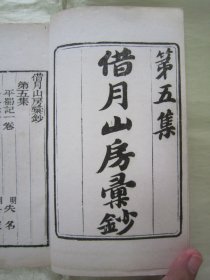 第五集
借月山房彙鈔
借月山房彙鈔
第五集
平蜀記一卷
明失名